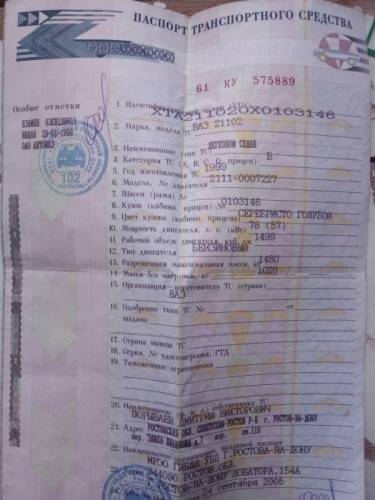 ПАСПОРТ ТРАНСПОРТНОГО СРЕДСТВА
61 КУ 575889
Особые отметки
ВЗАМЕН
ВЫДАН 23-01-1999
ОАО АВТОВАЗ
102
1. Идентификационный номер (VIN)
XTA211020X0103146
2. Марка, модель ТС ВАЗ 21102
3. Наименование (тип ТС) ЛЕГКОВОЙ СЕДАН
4. Категория ТС (A, B, C, D, прицеп) B
5. Год изготовления ТС 1999
6. Модель, № двигателя 2111-0007227
7. Шасси (рама) №
8. Кузов (кабина, прицеп) № 0103146
9. Цвет кузова (кабины, прицепа) СЕРЕБРИСТО ГОЛУБОЙ
10. Мощность двигателя, л. с. (кВт) 78 (57)
11. Рабочий объем двигателя, куб. см 1499
12. Тип двигателя БЕНЗИНОВЫЙ
13. Разрешенная максимальная масса, кг 1480
14. Масса без нагрузки, кг 1020
15. Организация-изготовитель ТС (страна)
ВАЗ
16. Одобрение типа ТС № от
выдано
17. Страна вывоза ТС
18. Серия, № удостоверения, ГТД
19. Таможенные ограничения
20. Наименование (ф. и. о.) собственника ТС
ДМИТРИЙ ВИКТОРОВИЧ
21. Адрес РОСТОВСКАЯ ОБЛ. СОВЕТСКИЙ Р-Н Г. РОСТОВ-НА-ДОНУ
22. Наименование организации, выдавшей паспорт
МРЭО ГИБДД УВД Г.РОСТОВА-НА-ДОНУ
344090 РОСТ.ОБЛ.
РОСТОВ-НА-ДОНУ ДОВАТОРА,154А
сентября 2005